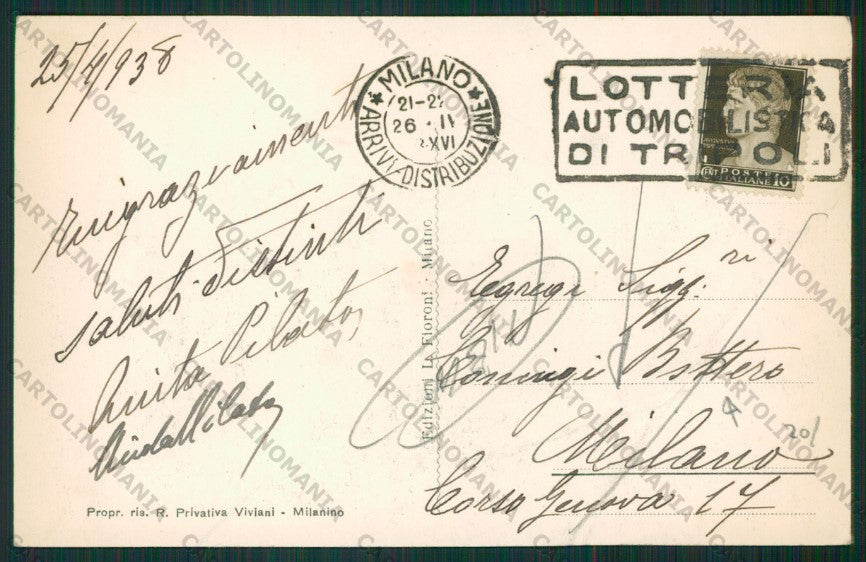 25/4/938
MILANO
21-22
26 · IV
XVI
ARRIVI-DISTRIBUZIONE
LOTTERIA
AUTOMOBILISTICA
DI TRIPOLI
POSTE
ITALIANE 10
Ringraziamenti
saluti distinti
Anita Pilato
Edizioni La Fioroni - Milano
Egregi Sigg.ri
Coningi Bottero
Milano
Corso Genova 17
201
Propr. ris. R. Privativa Viviani - Milanino
CARTOLINOMANIA